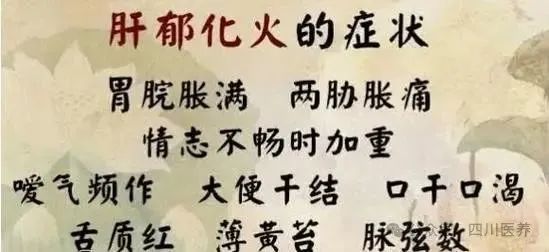 肝郁化火的症状
胃脘胀满 两胁胀痛
情志不畅时加重
嗳气频作 大便干结 口干口渴
舌质红 薄黄苔 脉弦数
四川医养